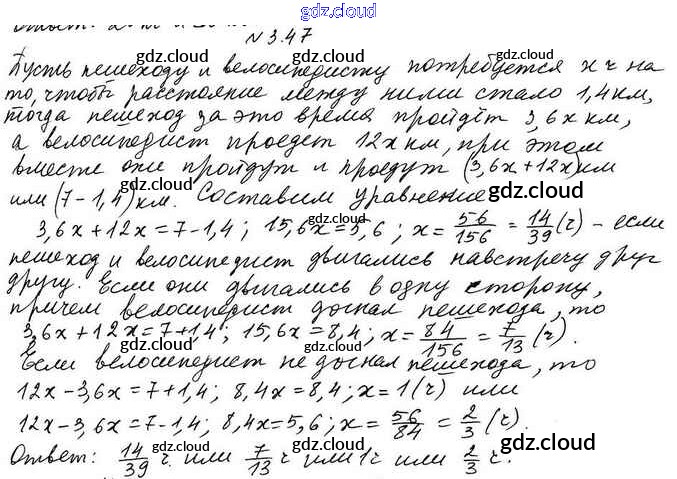 gdz.cloud
Ответ:
№3.47 gdz.cloud
gdz.cloud gdz.cloud gdz.cloud
Пусть пешеходу и велосипедисту потребуется x ч на
то, чтобы расстояние между ними стало 1,4км,
gdz.cloud gdz.cloud
тогда пешеход за это время пройдёт 3,6x км,
а велосипедист проедет 12x км, при этом
gdz.cloud gdz.cloud
вместе они пройдут и проедут (3,6x+12x)км
или (7-1,4)км. Составим уравнение
gdz.cloud gdz.cloud
3,6x+12x=7-1,4; 15,6x=5,6; x=56/156=14/39(ч) - если
пешеход и велосипедист двигались навстречу друг
gdz.cloud gdz.cloud
другу. Если они двигались в одну сторону,
причем велосипедист догнал пешехода, то
gdz.cloud gdz.cloud
3,6x+12x=7+1,4; 15,6x=8,4; x=84/156=7/13(ч).
Если велосипедист не догнал пешехода, то
gdz.cloud gdz.cloud
12x-3,6x=7+1,4; 8,4x=8,4; x=1(ч) или
gdz.cloud
12x-3,6x=7-1,4; 8,4x=5,6; x=56/84=2/3(ч).
gdz.cloud gdz.cloud
Ответ: 14/39 ч или 7/13 ч или 1ч или 2/3 ч.
gdz.cloud gdz.cloud